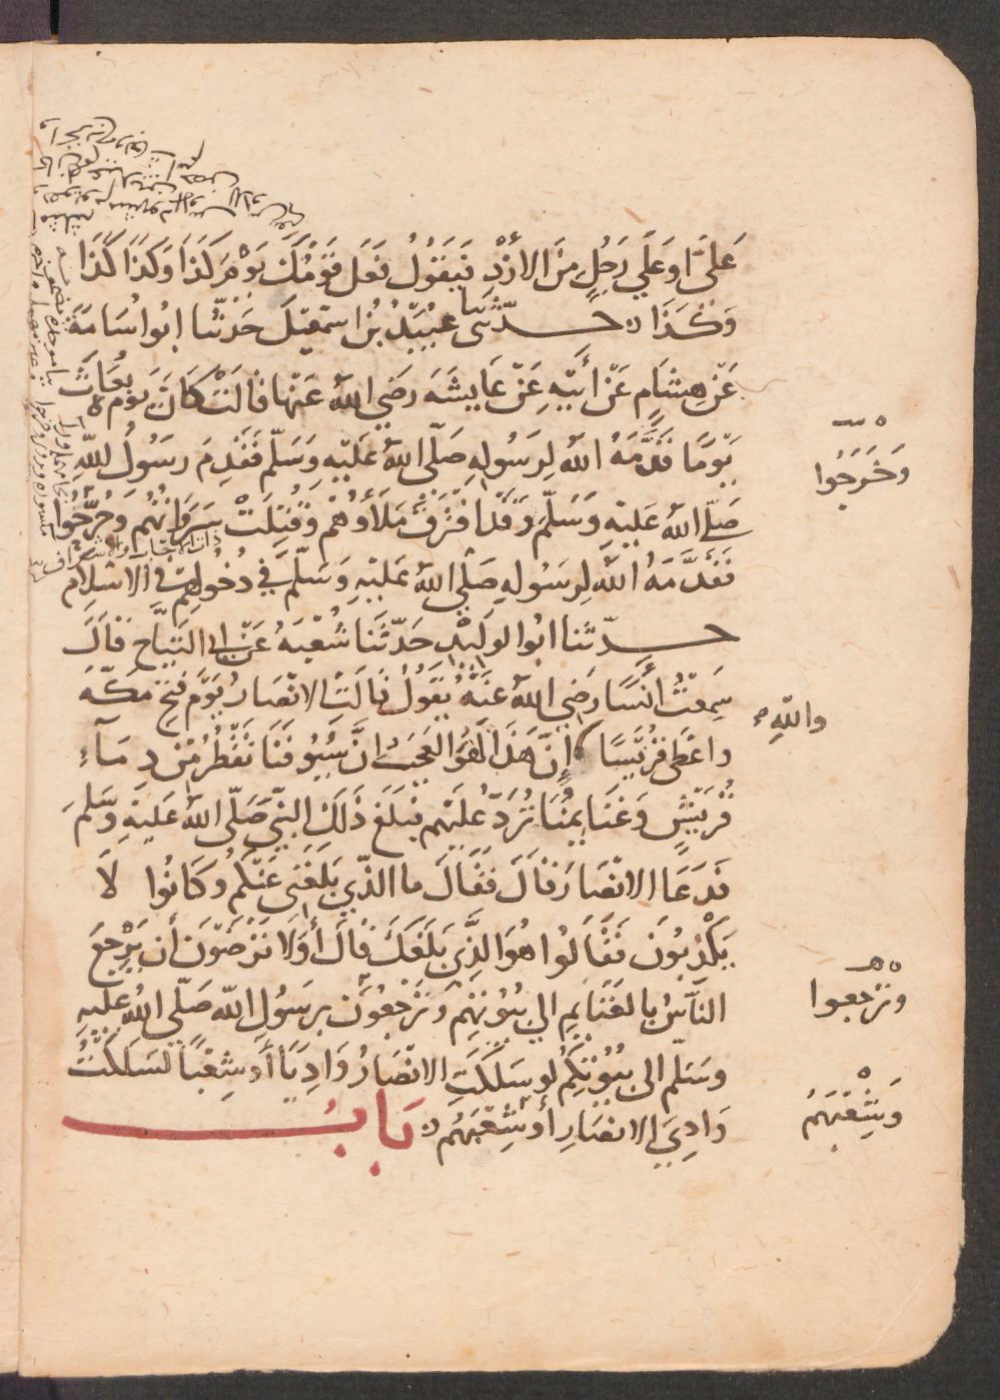 عَلَيَّ اوعَلَي رَجُلٍ مِنَ الأزْدِ فَيَقُولُ فَعَلَ قَوْمُكَ يَوْمَ كَذَا وَكَذَا كَذَا
وَكَذَا حدّثني عُبَيْدُ بْنُ اسمعِيلَ حَدّثنا ابُو اُسَامَةَ
عَنْ هِشَامٍ عَنْ أَبِيْهِ عَنْ عَايِشَةَ رَضِي اللهُ عَنْها قالَتْ كَانَ يَوم بُعَاثَ
يَوْمًا قَدَّمَهُ اللهُ لِرَسُولِهِ صَلّى اللهُ عَلَيْهِ وَسَلّم فَقَدِمَ رسَوُلُ اللهِ
صَلّى اللهُ عَلَيْهِ وَسَلّمَ وَقَدْ افْتَرَقَ مَلَأُوهُمْ وَقُتِلَتْ سَرَوَاتُهُم وَجُرّحُوا
فَقَدَّمَهُ اللهُ لِرسَوُلِهِ صَلّى اللهُ عَلَيْهِ وَسَلّم في دخُولِهِمْ في الاسْلَامِ
حدّثنا ابُوا لوَليْدِ حَدّثَنا شُعْبَهُ عَنْ ابي التيَّاحِ قالَ
سَمِعْتُ أنَسًا رَضِي اللهُ عَنْهُ يَقُولُ قالَتْ الانْصَارُ يَوْمَ فَتْحِ مَكّةَ
واعْطَى قُرَيْشًا إِنّ هَذَا لَهُوَ العَجَبُ انّ سُيُوفَنَا تَقْطُرُ مِنْ دِمَآءِ
قُرَيْشٍ وَغَنَايمُنَا تُرَدّ عَلَيْهم فبَلَغَ ذَلِكَ النبيّ صَلّى اللهُ عَليهِ وَسَّلمَ
فَدَعَا الانْصَارَ قالَ فَقَالَ ما الذّي بَلَغَني عَنْكُم وَكَانُوا لَا
يَكْذِبُونَ فَقَالُوا هُوَ الذَّي بَلَغَكَ قالَ أوَلَا تَرْضَوْنَ أن يَرْجِعَ
النّاسُ بالغَنَايمِ الي بُيُوْتِهِمْ وَتَرْجِعُوْنَ برَسُولِ اللهِ صَلّى اللهُ عَليهِ
وسَلّم الى بُيُوْتِكُمْ لو سَلَكَتِ الانْصَارُ وَادِيًا أوْشِعْبًا لَسَلَكْتُ
وَادِيَ الانصَارِ أوْشِعْبَهُم بَابُ
وَخَرَجُوا
واللهِ
وتَرْجِعوا
وَشِعْبَهُم